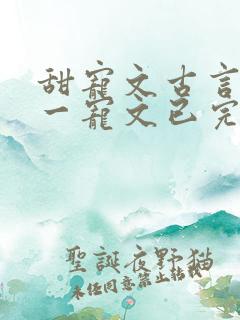 甜寵文古言
一寵文已完
聖誕夜野猫
未經同意禁止轉載